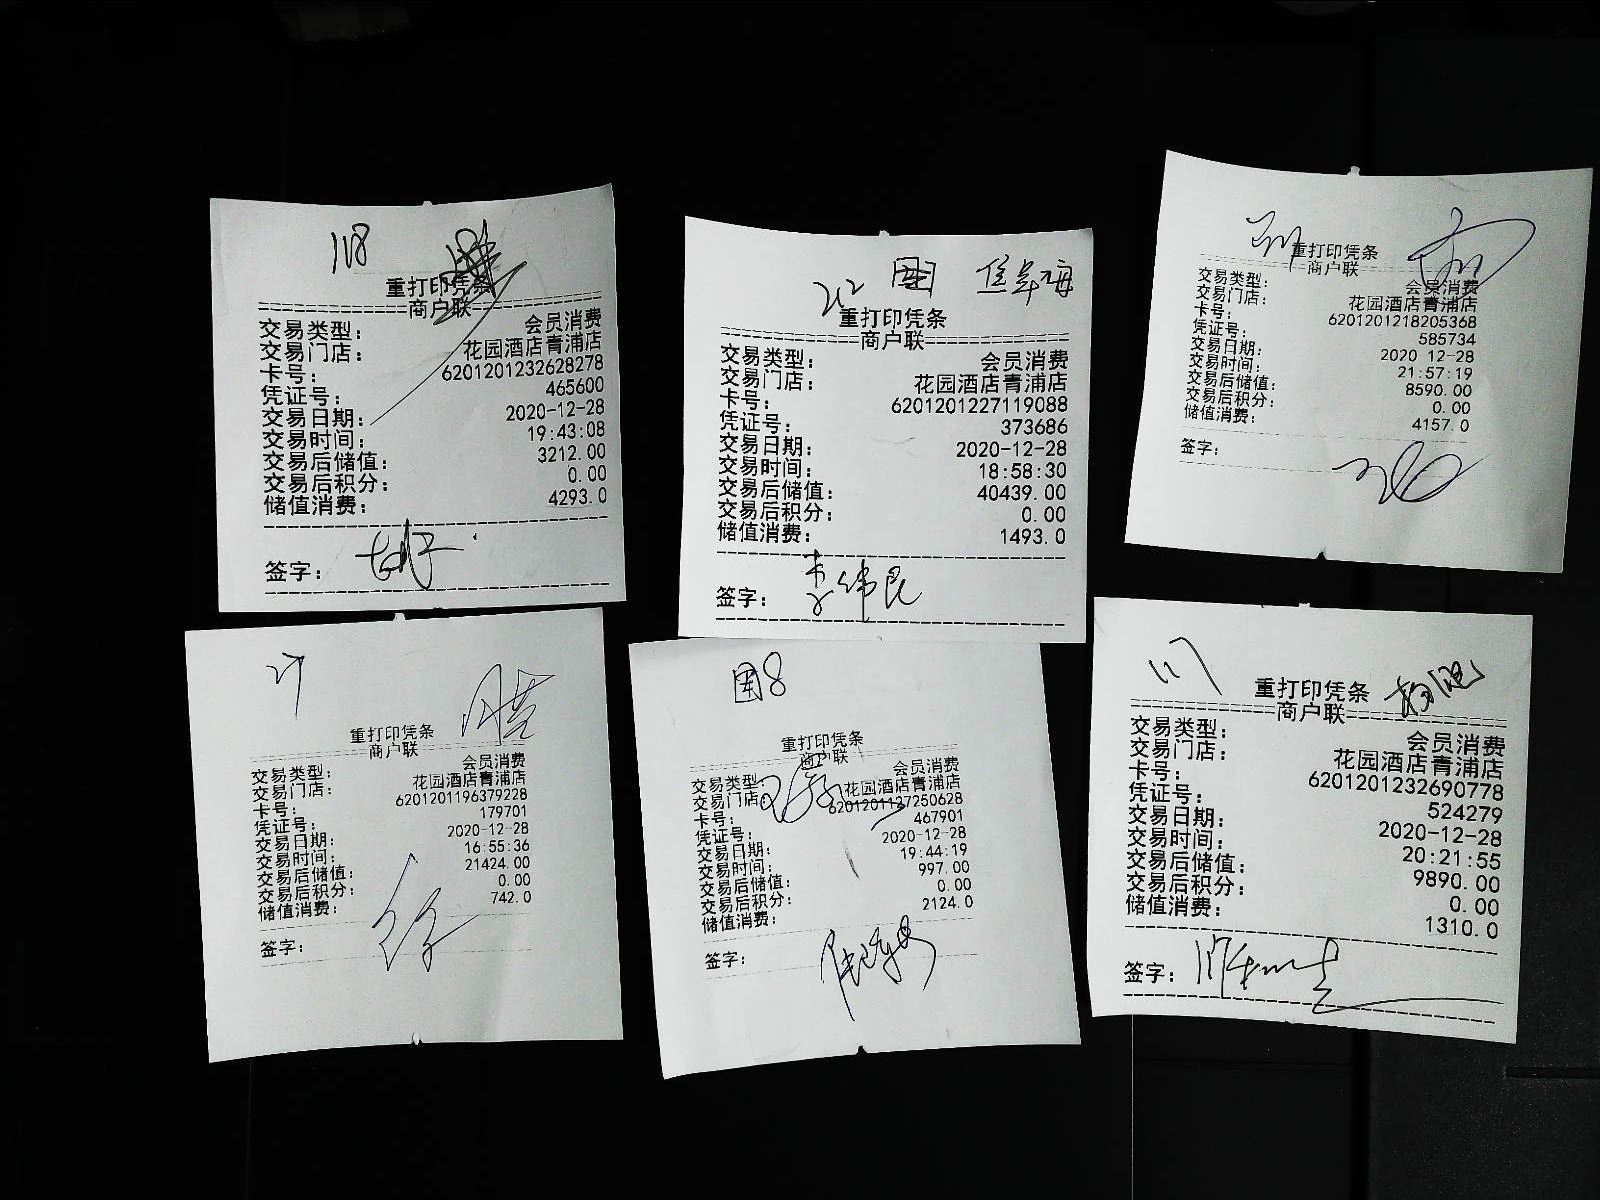 118
重打印凭条
商户联
交易类型: 会员消费
交易门店: 花园酒店青浦店
卡号: 6201201232628278
凭证号: 465600
交易日期: 2020-12-28
交易时间: 19:43:08
交易后储值: 3212.00
交易后积分: 0.00
储值消费: 4293.0
签字:
212
重打印凭条
商户联
交易类型: 会员消费
交易门店: 花园酒店青浦店
卡号: 6201201227119088
凭证号: 373686
交易日期: 2020-12-28
交易时间: 18:58:30
交易后储值: 40439.00
交易后积分: 0.00
储值消费: 1493.0
签字: 李伟良
重打印凭条
商户联
交易类型: 会员消费
交易门店: 花园酒店青浦店
卡号: 6201201218205368
凭证号: 585734
交易日期: 2020 12-28
交易时间: 21:57:19
交易后储值: 8590.00
交易后积分: 0.00
储值消费: 4157.0
签字:
重打印凭条
商户联
交易类型: 会员消费
交易门店: 花园酒店青浦店
卡号: 6201201196379228
凭证号: 179701
交易日期: 2020-12-28
交易时间: 16:55:36
交易后储值: 21424.00
交易后积分: 0.00
储值消费: 742.0
签字:
围8
重打印凭条
商户联
交易类型: 会员消费
交易门店: 花园酒店青浦店
卡号: 6201201137250628
凭证号: 467901
交易日期: 2020-12-28
交易时间: 19:44:19
交易后储值: 997.00
交易后积分: 0.00
储值消费: 2124.0
签字:
117
重打印凭条
商户联
交易类型: 会员消费
交易门店: 花园酒店青浦店
卡号: 6201201232690778
凭证号: 524279
交易日期: 2020-12-28
交易时间: 20:21:55
交易后储值: 9890.00
交易后积分: 0.00
储值消费: 1310.0
签字: